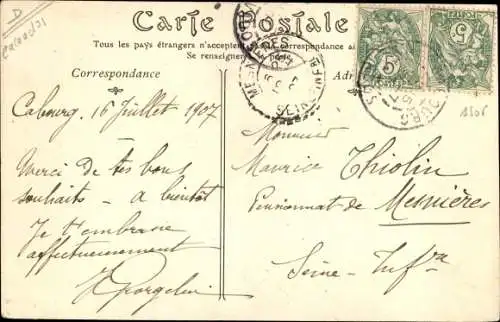 D
Calvados
Carte Postale
Tous les pays étrangers n'acceptent
Se renseigner poste.
Correspondance
Cabourg, 16 Juillet 1907
Merci de tes bons
souhaits - à bientôt
Je t'embrasse
affectueusement
Monsieur
Maurice Thiolin
Pensionnat de Mesnières
Seine-Infre
5
5